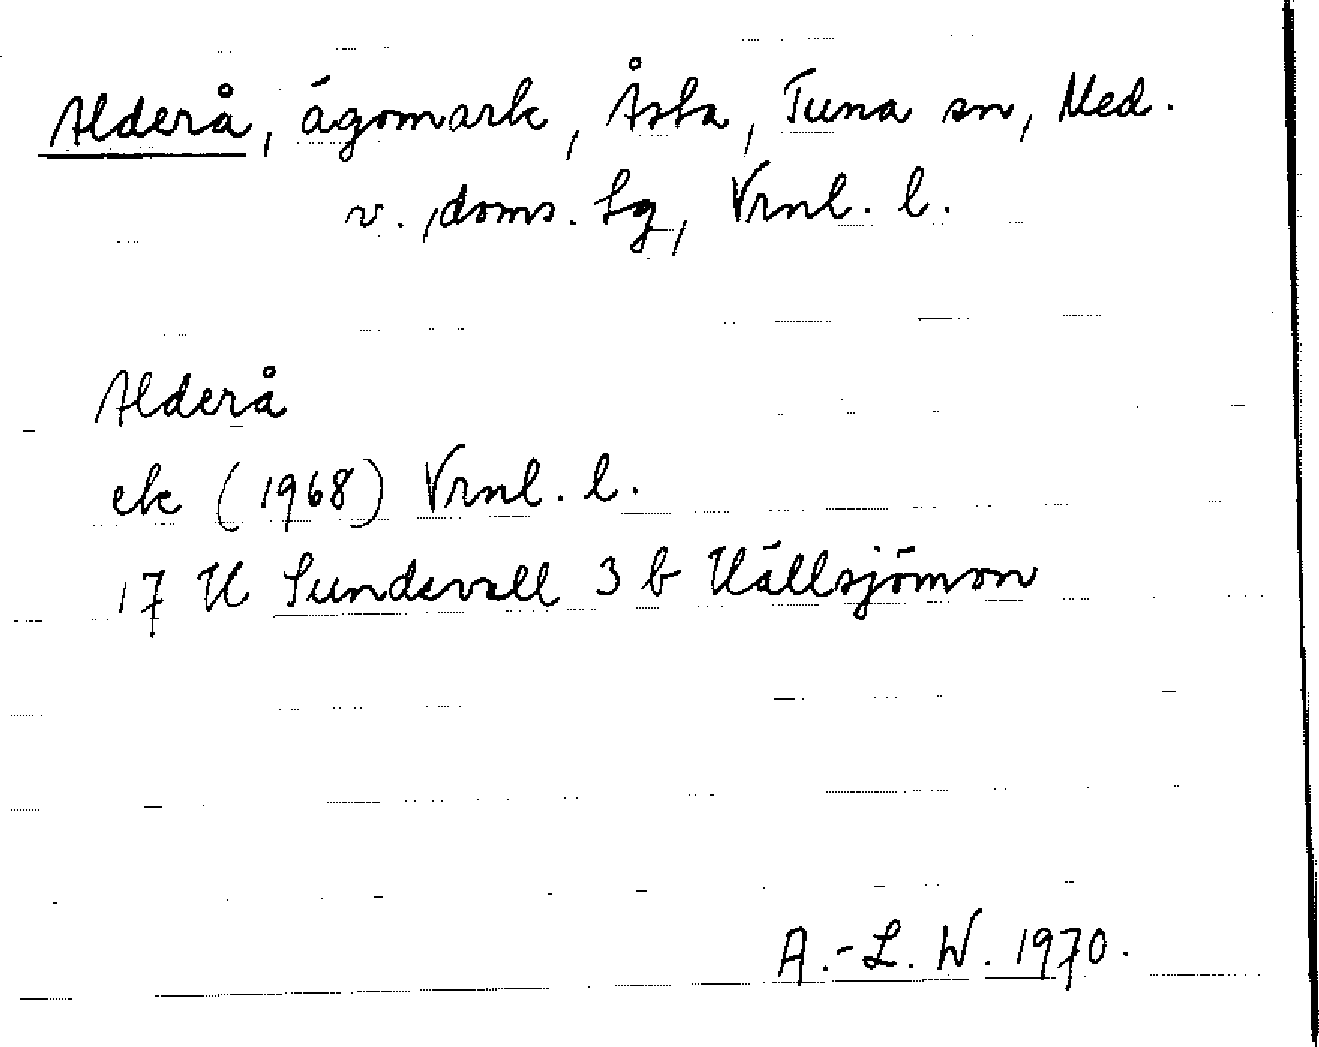 Alderå, ägomark, Åsta, Tuna sn, Med.
v. doms. Lg, Vrnl. l.
Alderå
ek (1968) Vrnl. l.
17 H Sundsvall 3 b Hällsjömon
A.-L. W. 1970.